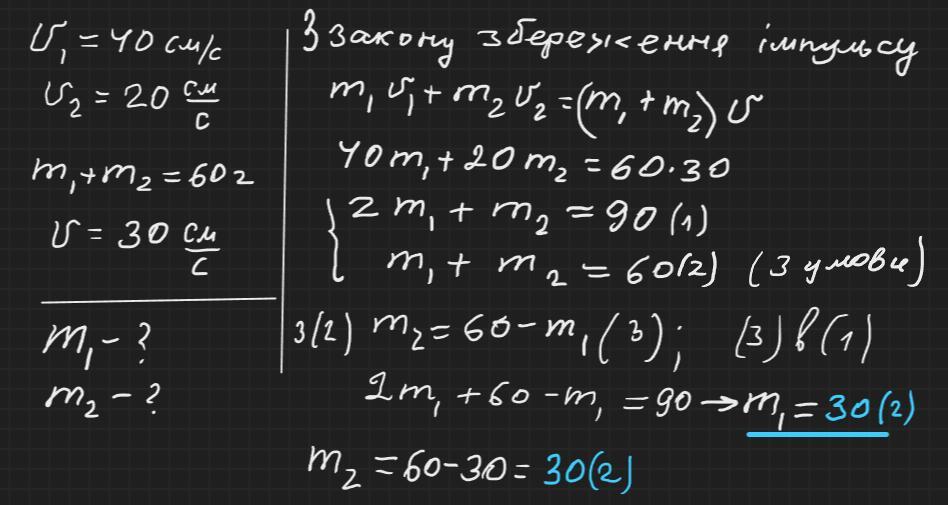 υ₁ = 40 см/с
υ₂ = 20 см/с
m₁ + m₂ = 60 г
υ = 30 см/с
m₁ - ?
m₂ - ?
З закону збереження імпульсу
m₁υ₁ + m₂υ₂ = (m₁ + m₂)υ
40m₁ + 20m₂ = 60·30
{ 2m₁ + m₂ = 90 (1)
m₁ + m₂ = 60 (2) (З умови)
З (2) m₂ = 60 - m₁ (3); (3) в (1)
2m₁ + 60 - m₁ = 90 → m₁ = 30 (г)
m₂ = 60 - 30 = 30 (г)